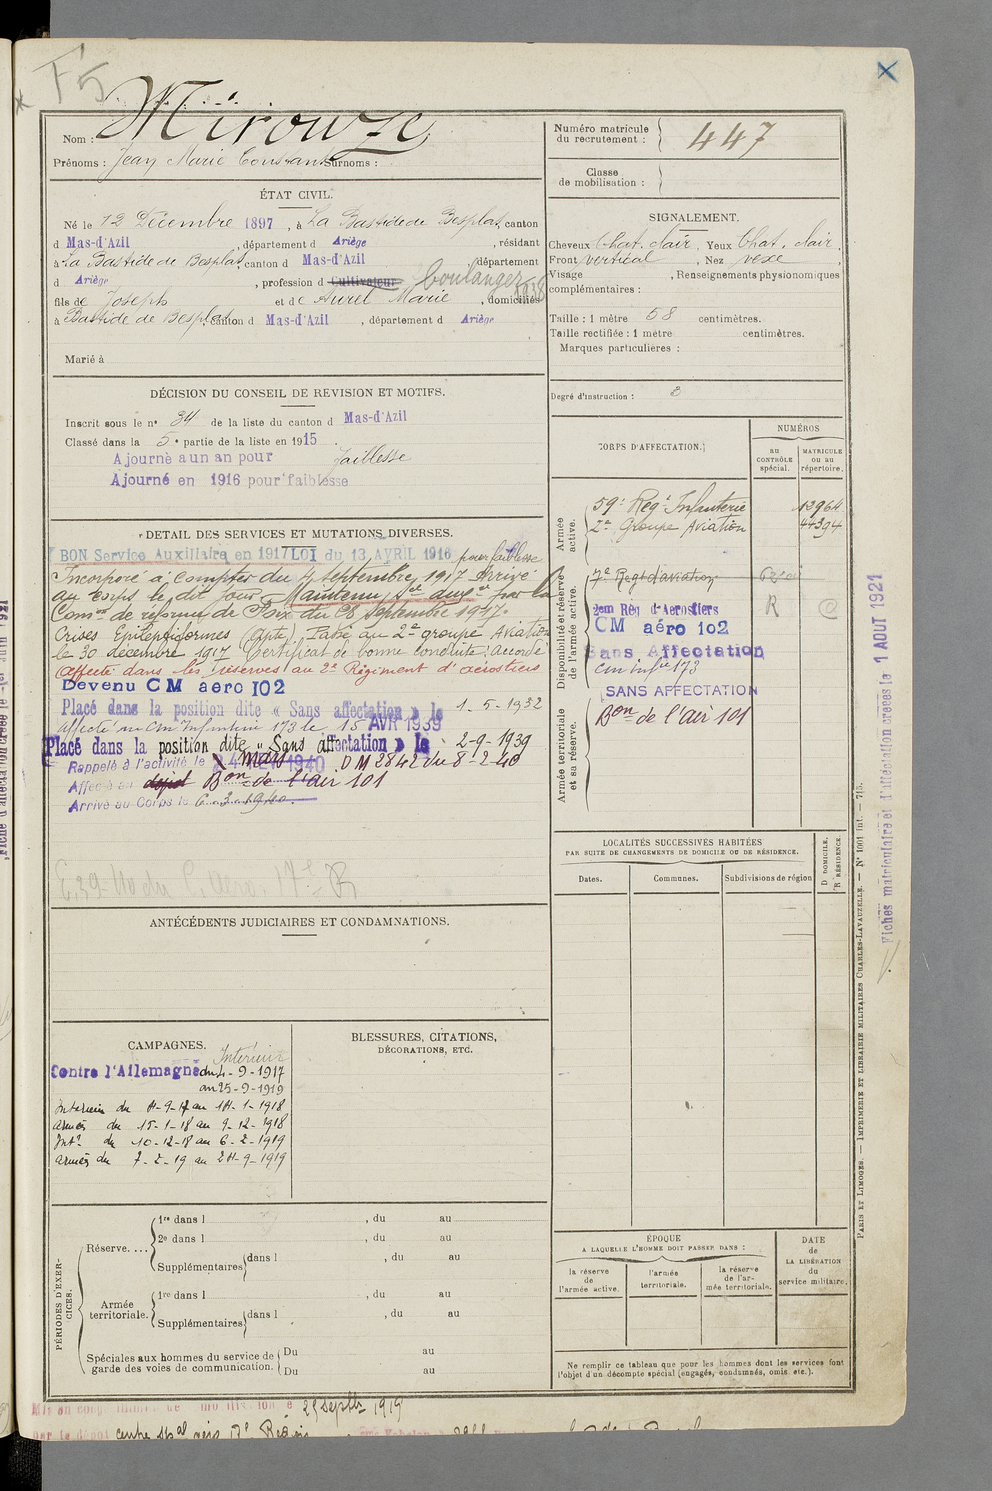 F5
Nom : Mirouze
Prénoms : Jean Marie Constant Surnoms :
Numéro matricule du recrutement : 447
Classe de mobilisation :
ÉTAT CIVIL.
Né le 12 Décembre 1897, à La Bastide de Besplas, canton
d Mas-d'Azil, département d Ariège, résidant
à La Bastide de Besplas, canton d Mas-d'Azil, département
d Ariège, profession d Cultivateur boulanger 1938
fils de Joseph et de Aurel Marie, domiciliés
à Bastide de Besplas, canton d Mas-d'Azil, département d Ariège
Marié à
SIGNALEMENT.
Cheveux Chat. clair, Yeux Chat. clair,
Front vertical, Nez vexe,
Visage , Renseignements physionomiques
complémentaires :
Taille : 1 mètre 58 centimètres.
Taille rectifiée : 1 mètre centimètres.
Marques particulières :
Degré d'instruction : 3
DÉCISION DU CONSEIL DE REVISION ET MOTIFS.
Inscrit sous le n° 34 de la liste du canton d Mas-d'Azil
Classé dans la 5e partie de la liste en 1915.
Ajourné a un an pour faiblesse
Ajourné en 1916 pour faiblesse
DÉTAIL DES SERVICES ET MUTATIONS DIVERSES.
BON Service Auxiliaire en 1917 LOI du 13 AVRIL 1916 pour faiblesse
Incorporé à compter du 4 Septembre 1917 Arrivé
au corps le dit jour. Maintenu Sce auxre par la
Comon de réforme de Foix du 28 Septembre 1917.
Crises Epileptiformes (apte) Passé au 2e groupe Aviation
le 30 décembre 1917 Certificat de bonne conduite : accordé
Affecté dans les réserves au 2e Régiment d'aérostiers
Devenu CM aéro 102
Placé dans la position dite « Sans affectation » le 1-5-1932
Affecté au Cm Infanterie 173 le 15 AVR 1939
Placé dans la position dite « Sans affectation » le 2-9-1939
Rappelé à l'activité le mars 1940 DM 3842 du 8-2-40
Affecté au dépôt Bon de l'air 101
Arrivé au Corps le 6-3-1940.
CORPS D'AFFECTATION.
NUMÉROS
au CONTRÔLE spécial.
MATRICULE ou au répertoire.
Armée active.
59e Regt Infanterie 12964
2e Groupe Aviation 44394
Disponibilité et réserve de l'armée active.
7e Regt d'aviation
2em Rég d'Aérostiers R
CM aéro 102
Sans Affectation
cm infie 173
SANS AFFECTATION
Armée territoriale et sa réserve.
Bon de l'air 101
LOCALITÉS SUCCESSIVES HABITÉES
PAR SUITE DE CHANGEMENTS DE DOMICILE OU DE RÉSIDENCE.
Dates. Communes. Subdivisions de région
D DOMICILE. R RÉSIDENCE.
ANTÉCÉDENTS JUDICIAIRES ET CONDAMNATIONS.
CAMPAGNES.
Intérieur
Contre l'Allemagne du 4-9-1917
au 25-9-1919
Intérieur du 4-9-17 au 14-1-1918
armées du 15-1-18 au 9-12-1918
Intr du 10-12-18 au 6-2-1919
armées du 7-2-19 au 24-9-1919
BLESSURES, CITATIONS,
DÉCORATIONS, ETC.
PÉRIODES D'EXERCICES.
Réserve....
1re dans l , du au
2e dans l , du au
Supplémentaires dans l , du au
Armée territoriale.
1re dans l , du au
Supplémentaires dans l , du au
Spéciales aux hommes du service de garde des voies de communication.
Du au
Du au
ÉPOQUE
A LAQUELLE L'HOMME DOIT PASSER DANS :
la réserve de l'armée active.
l'armée territoriale.
la réserve de l'armée territoriale.
DATE de LA LIBÉRATION du service militaire.
Ne remplir ce tableau que pour les hommes dont les services font
l'objet d'un décompte spécial (engagés, condamnés, omis etc.).
Fiches matriculaire et d'affectation créées le 1 AOUT 1921
PARIS ET LIMOGES. — IMPRIMERIE ET LIBRAIRIE MILITAIRES CHARLES-LAVAUZELLE. — N° 1001 int. — 715.
25 Septbre 1919